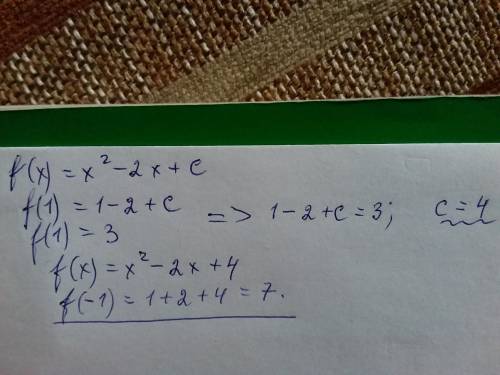 f(x) = x² - 2x + c
f(1) = 1 - 2 + c
f(1) = 3
=> 1 - 2 + c = 3; c = 4
f(x) = x² - 2x + 4
f(-1) = 1 + 2 + 4 = 7.